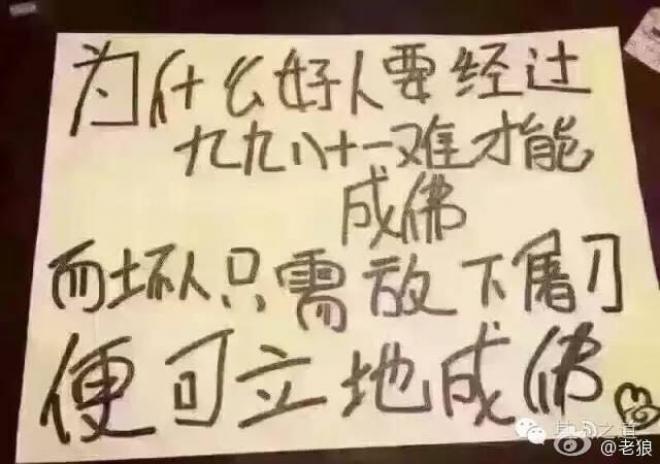 为什么好人要经过
九九八十一难才能
成佛
而坏人只需放下屠刀
便可立地成佛
@老狼